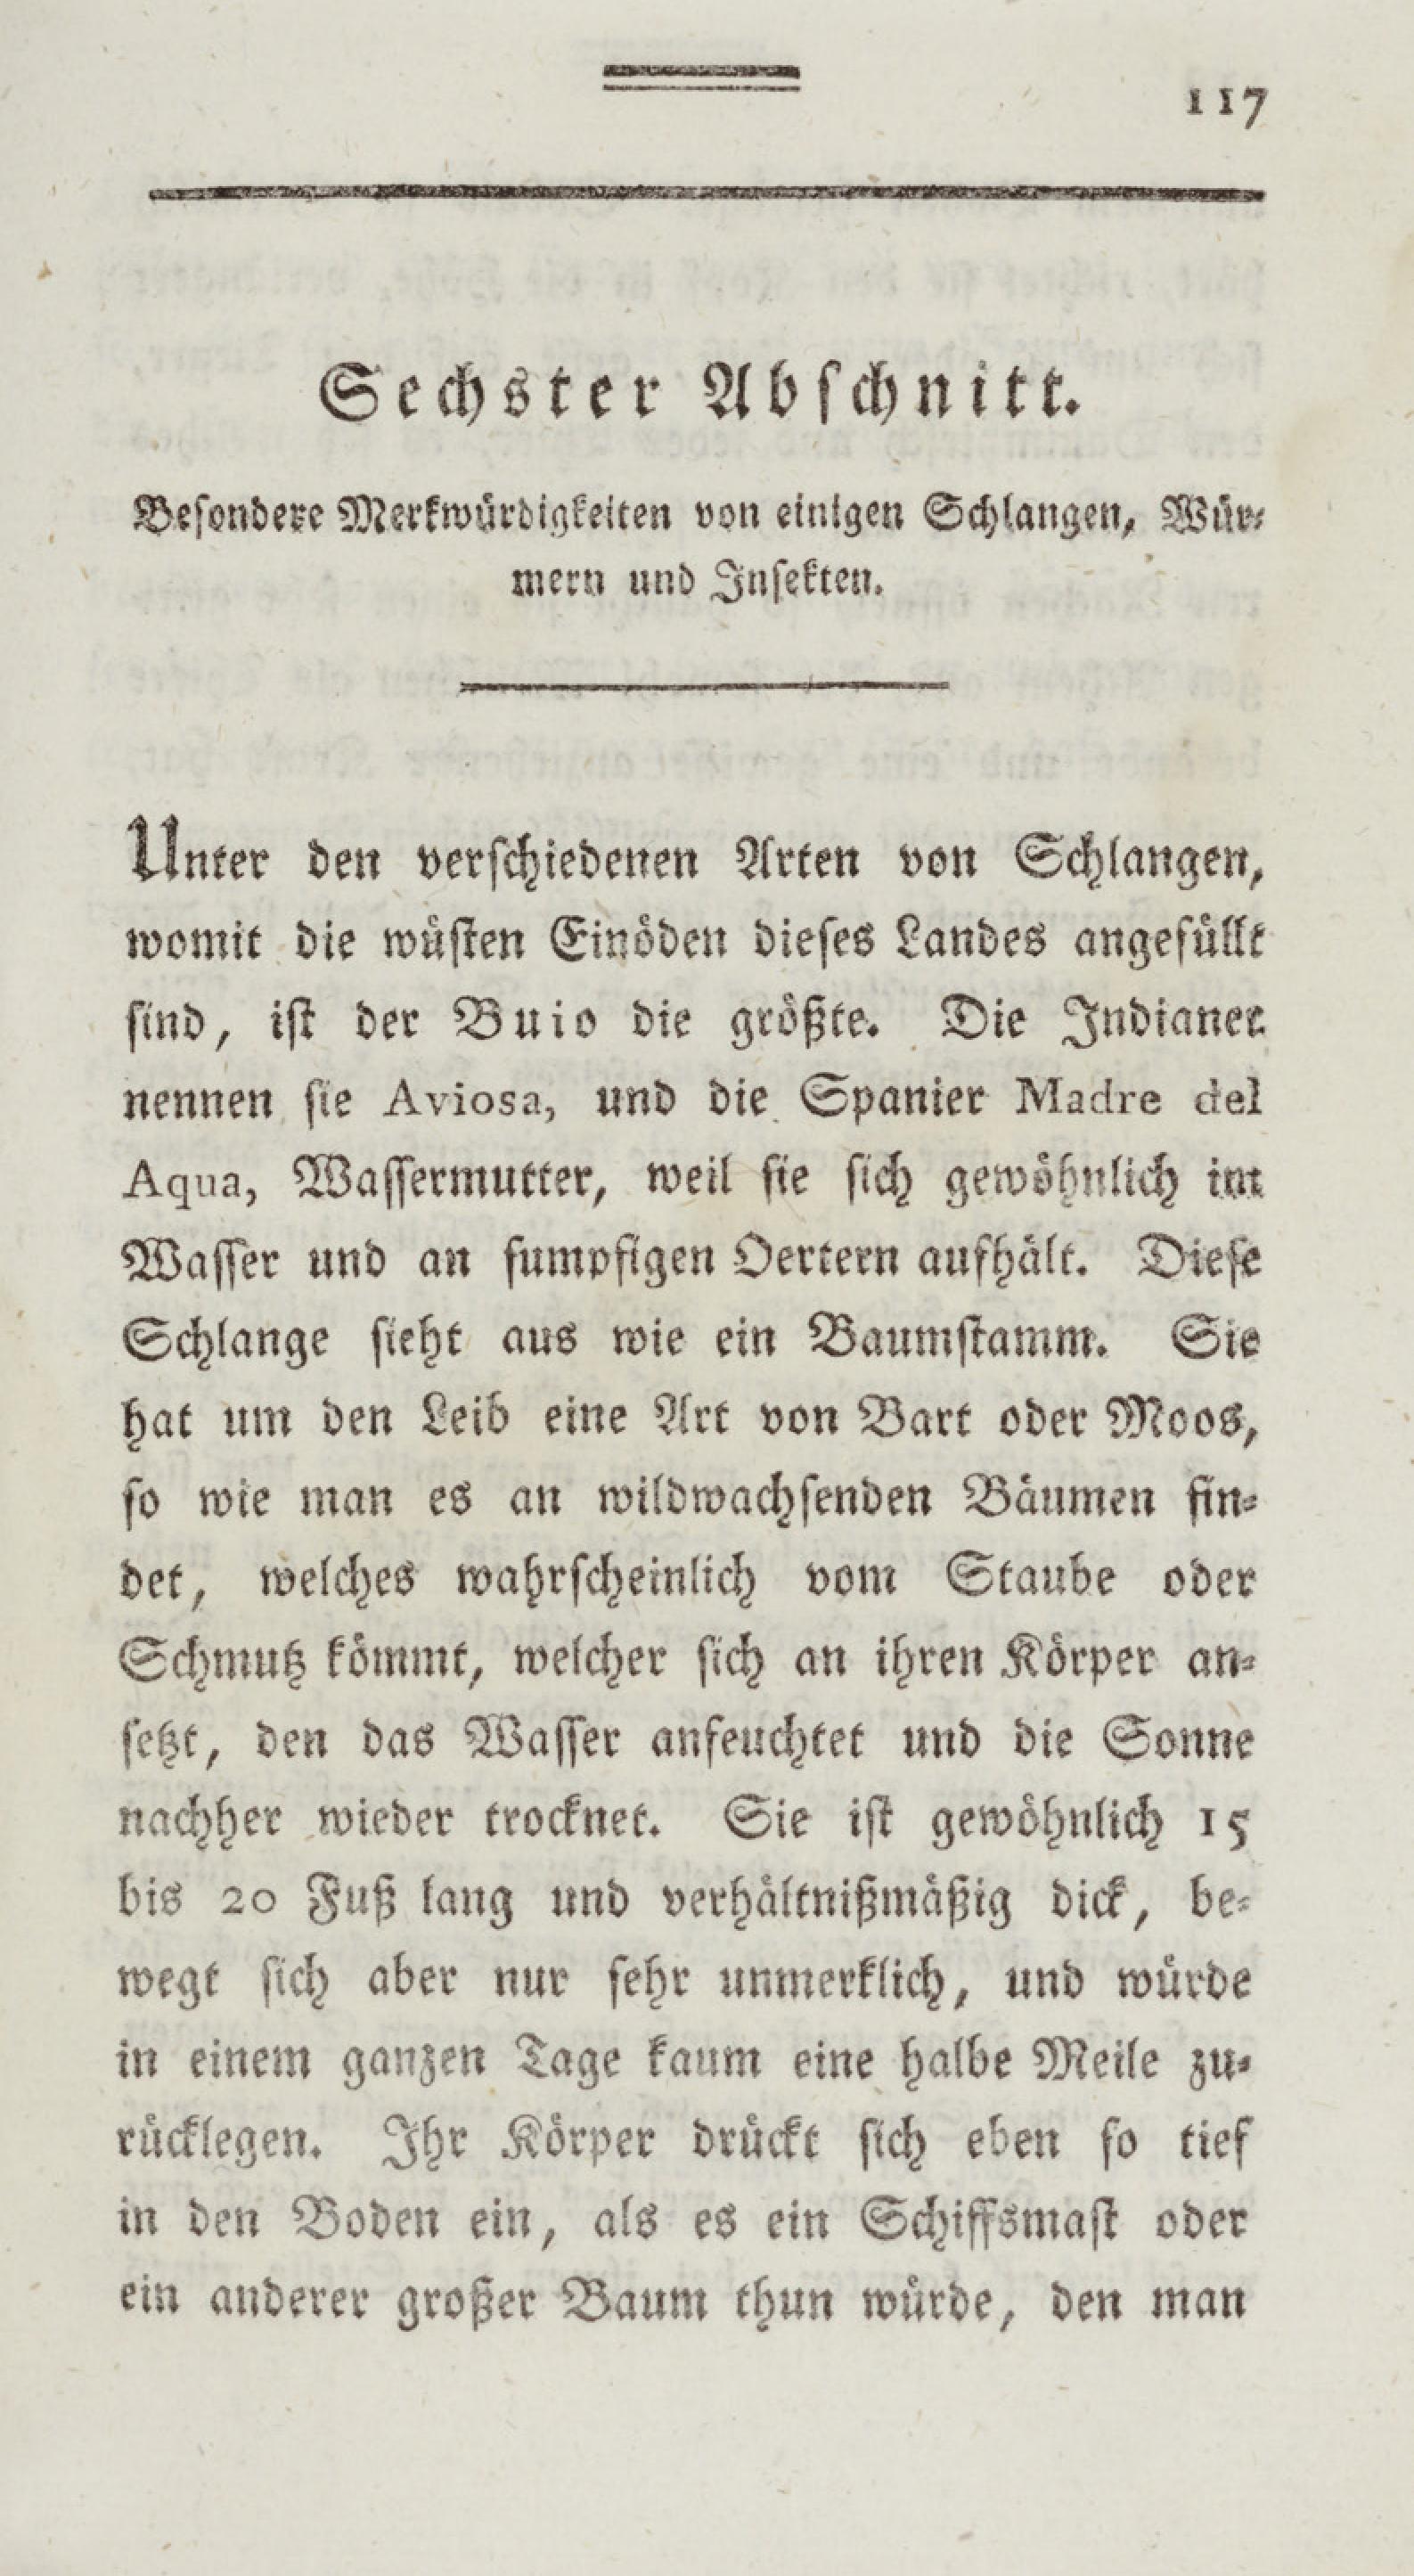 117
Sechster Abschnitt.
Besondere Merkwürdigkeiten von einigen Schlangen, Wür-
mern und Insekten.
Unter den verschiedenen Arten von Schlangen,
womit die wüsten Einöden dieses Landes angefüllt
sind, ist der Buio die größte. Die Indianer
nennen sie Aviosa, und die Spanier Madre del
Aqua, Wassermutter, weil sie sich gewöhnlich im
Wasser und an sumpfigen Oertern aufhält. Diese
Schlange sieht aus wie ein Baumstamm. Sie
hat um den Leib eine Art von Bart oder Moos,
so wie man es an wildwachsenden Bäumen fin-
det, welches wahrscheinlich vom Staube oder
Schmutz kömmt, welcher sich an ihren Körper an-
setzt, den das Wasser anfeuchtet und die Sonne
nachher wieder trocknet. Sie ist gewöhnlich 15
bis 20 Fuß lang und verhältnißmäßig dick, be-
wegt sich aber nur sehr unmerklich, und würde
in einem ganzen Tage kaum eine halbe Meile zu-
rücklegen. Ihr Körper drückt sich eben so tief
in den Boden ein, als es ein Schiffsmast oder
ein anderer großer Baum thun würde, den man